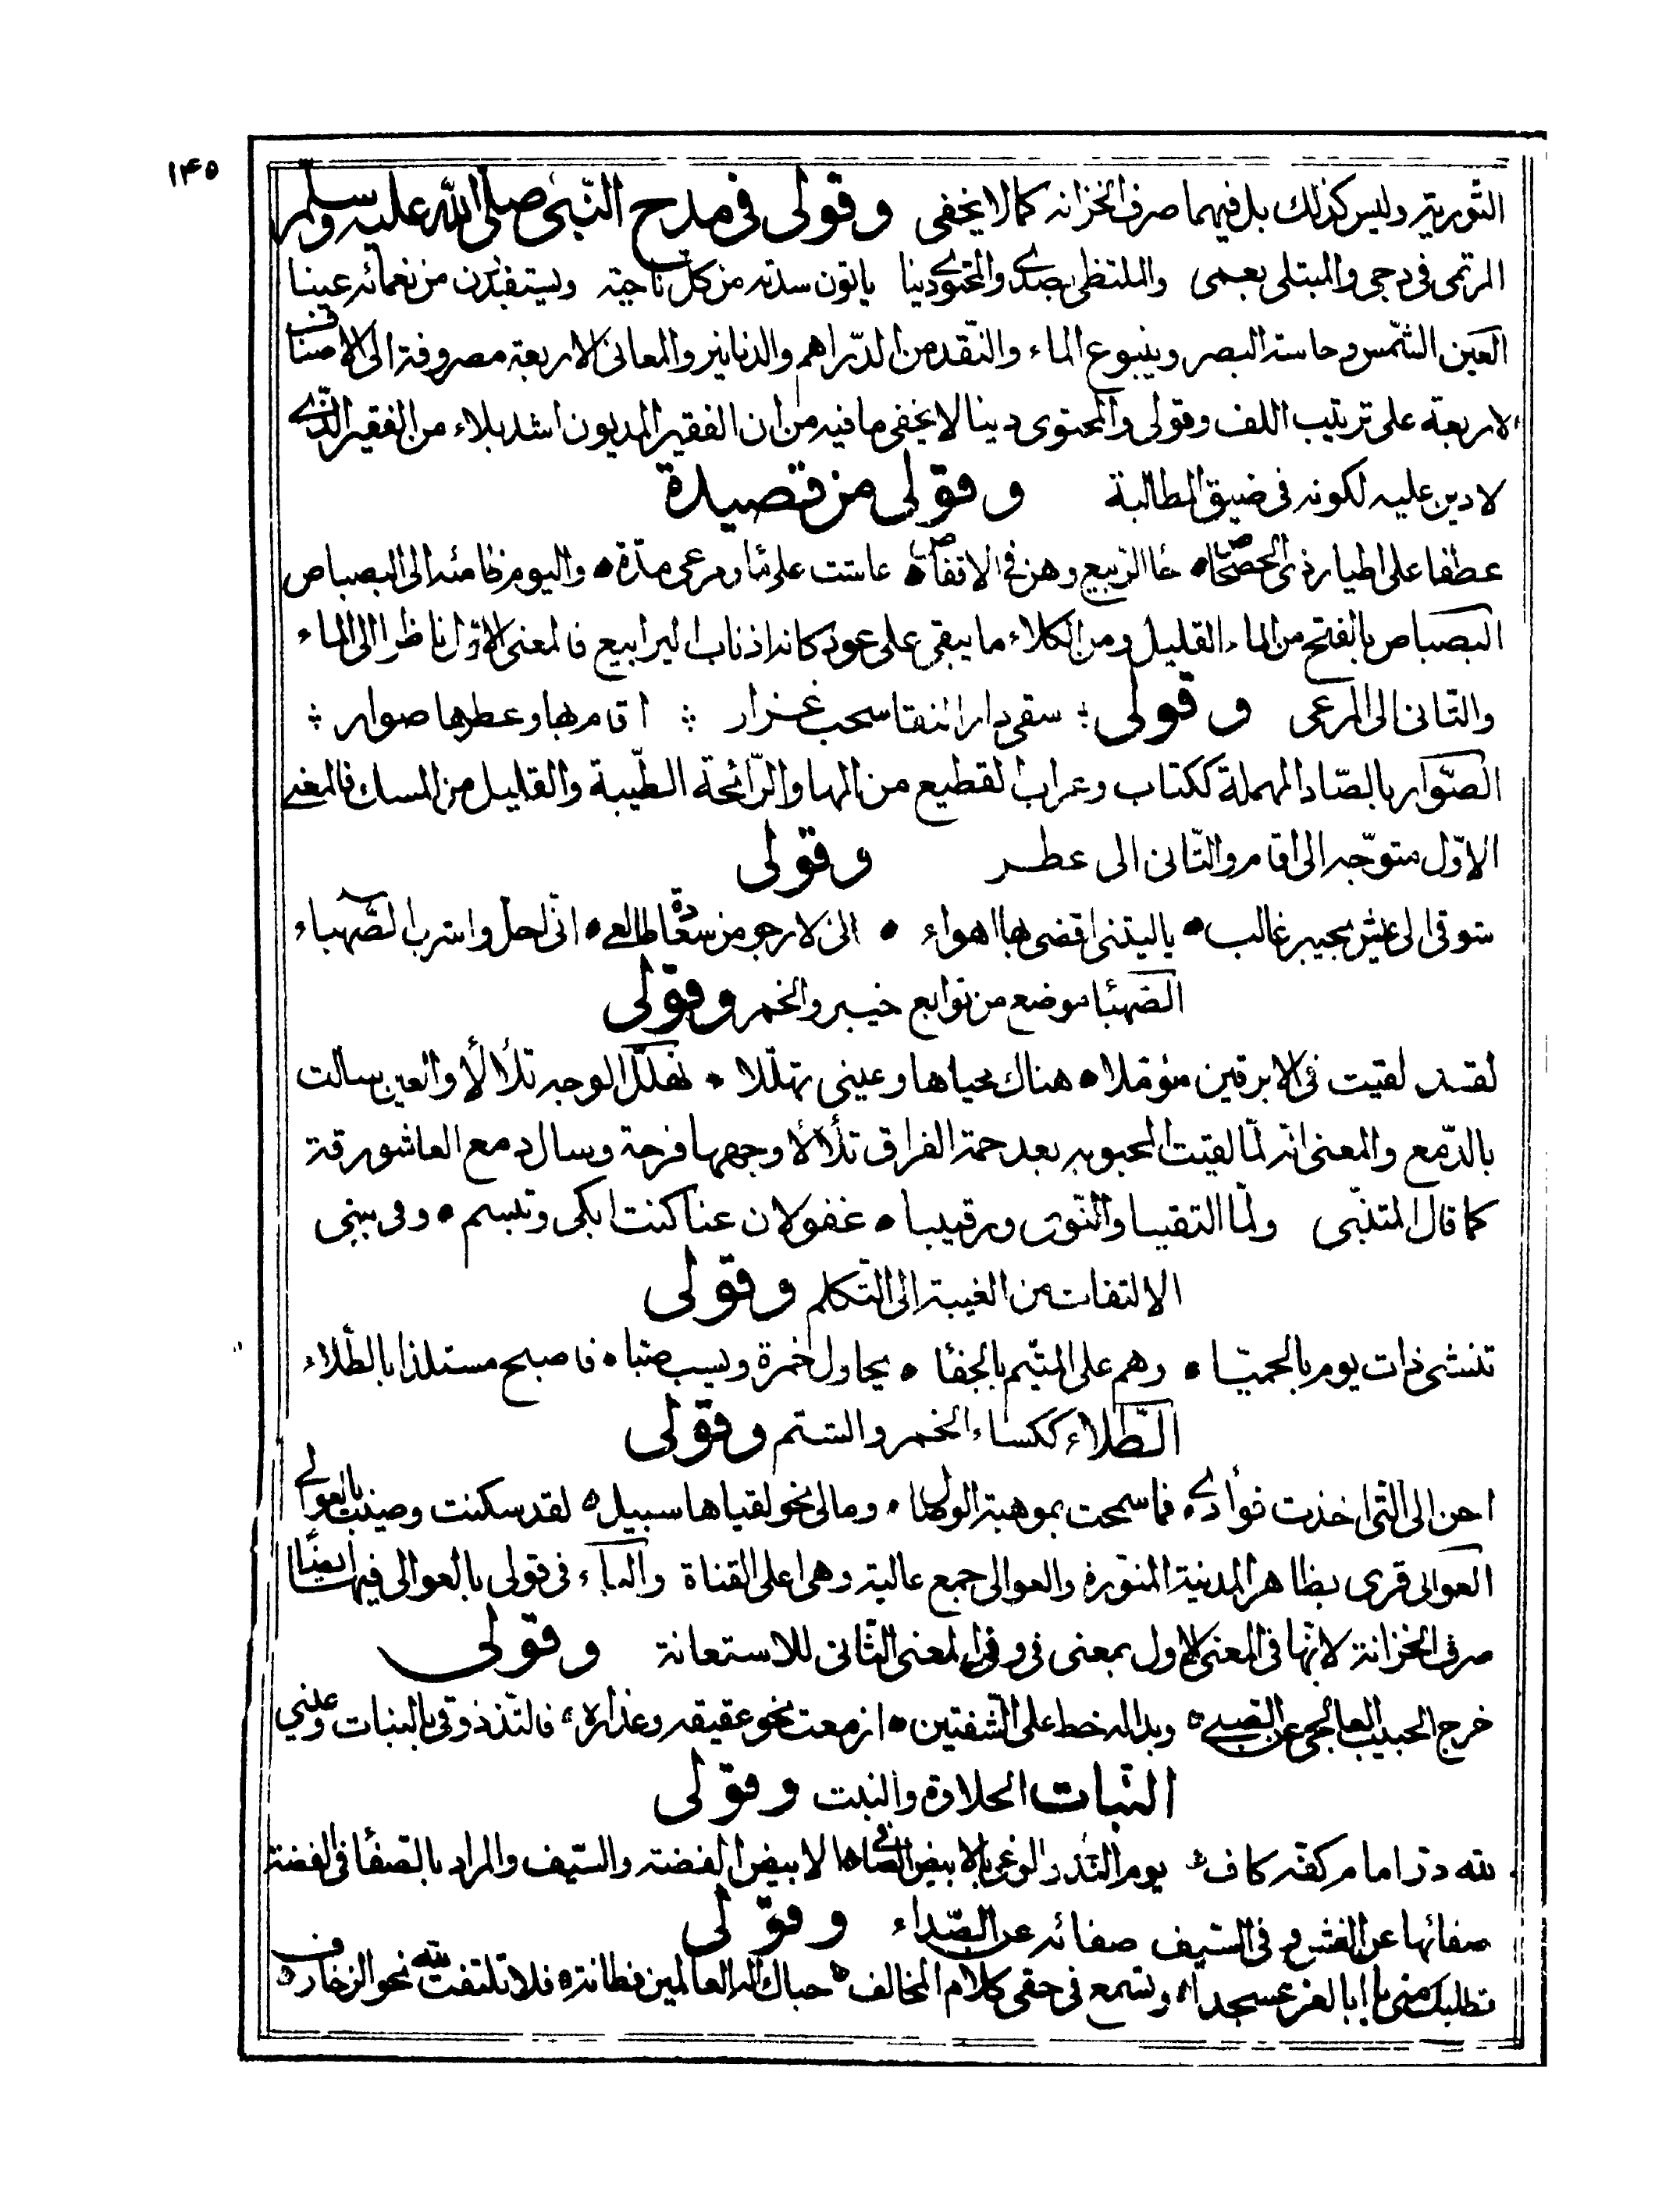 ١٤٥
التورية وليس كذلك بل فيهما صرف الخزانه كما لا يخفى وقولى فى مدح النبى صلى الله عليه وسلم
المرتمى فى دجى والمبتلى بعمى والملتظى بصدى والمحتوى دينا ياتون سدته من كل ناحية ويستفيدن من نعمائه عينا
العين الشمس وحاسة البصر وينبوع الماء والنقد من الدراهم والدنانير والمعانى الاربعة مصروفة الى الاصناف
الاربعة على ترتيب اللف وقولى والمحتوى دينا لا يخفى ما فيه من ان الفقير المديون اشد بلاء من الفقير الذى
لا دين عليه لكونه فى ضيق المطالبة وقولى من قصيدة
عطفا على اطيار ذى الحصحاص جاء الربيع وهن فى الاقفاص عاشت على ماء ومرعى مدة واليوم ظامئة الى البصباص
البصباص بالفتح من الماء القليل ومن الكلاء ما يبقى على عود كانه اذناب اليرابيع فالمعنى الاول ناظر الى الماء
والثانى الى المرعى وقولى سقى دار النقا سحب غزار اقام بها وعطرها صوار
الصوار بالصاد المهملة ككتاب وغراب القطيع من المها والرائحة الطيبة والقليل من المسك فالمعنى
الاول متوجه الى اقام والثانى الى عطر وقولى
شوقى الى عيش بخيبر غالب يا ليتنى اقضى بها اهواء انى لارجو من سعادة طالعى انى احل واشرب الصهباء
الصهبا موضع من توابع خيبر والخمر وقولى
لقد لقيت فى الابرقين مؤملا هناك محياها وعينى تهللا تهلل الوجه تلألأ والعين سالت
بالدمع والمعنى انه لما لقيت المحبوبه بعد حمة الفراق تلألأ وجهها فرحة وسال دمع العاشق رقة
كما قال المتنبى ولما التقيا والنوى ورقيبا غفولان عنا كنت ابكى وتبسم وفى بيتى
الالتفات من الغيبة الى التكلم وقولى
تنشى ذات يوم بالحميا وهم على المتيم بالجفا يحاول خمرة ويسب صبا فاصبح مستلذا بالطلاء
الطلاء ككساء الخمر والشتم وقولى
احن الى التى اخذت فوأدى فما سمحت بموهبة الوصال وما لى نحو لقياها سبيل لقد سكنت وصينت بالعوالى
العوالى قرى بظاهر المدينة المنورة والعوالى جمع عالية وهى اعلى القناة والباء فى قولى بالعوالى فيها ايضا
صرف الخزانة لانها فى المعنى الاول بمعنى فى وفى المعنى الثانى للاستعانة وقولى
خرج الحبيب العالجى عن الصبى وبدا له خط على الشفتين ازمعت نحو عقيقه وعذاره فالتذ ذوقى بالنبات وعينى
النبات الحلاوة والنبت وقولى
لله در امام كفه كاف يوم الندى والوغى بالابيض الصافى الابيض الفضة والسيف والمراد بالصفا فى الفضة
صفائها عن الغش وفى السيف صفائه عن الصداء وقولى
تطلبك منى يا ابا الغر عسجدا وتسمع فى حقى كلام المخالف حباك اله العالمين فطانة فلا تلتفت لله نحو الزخارف